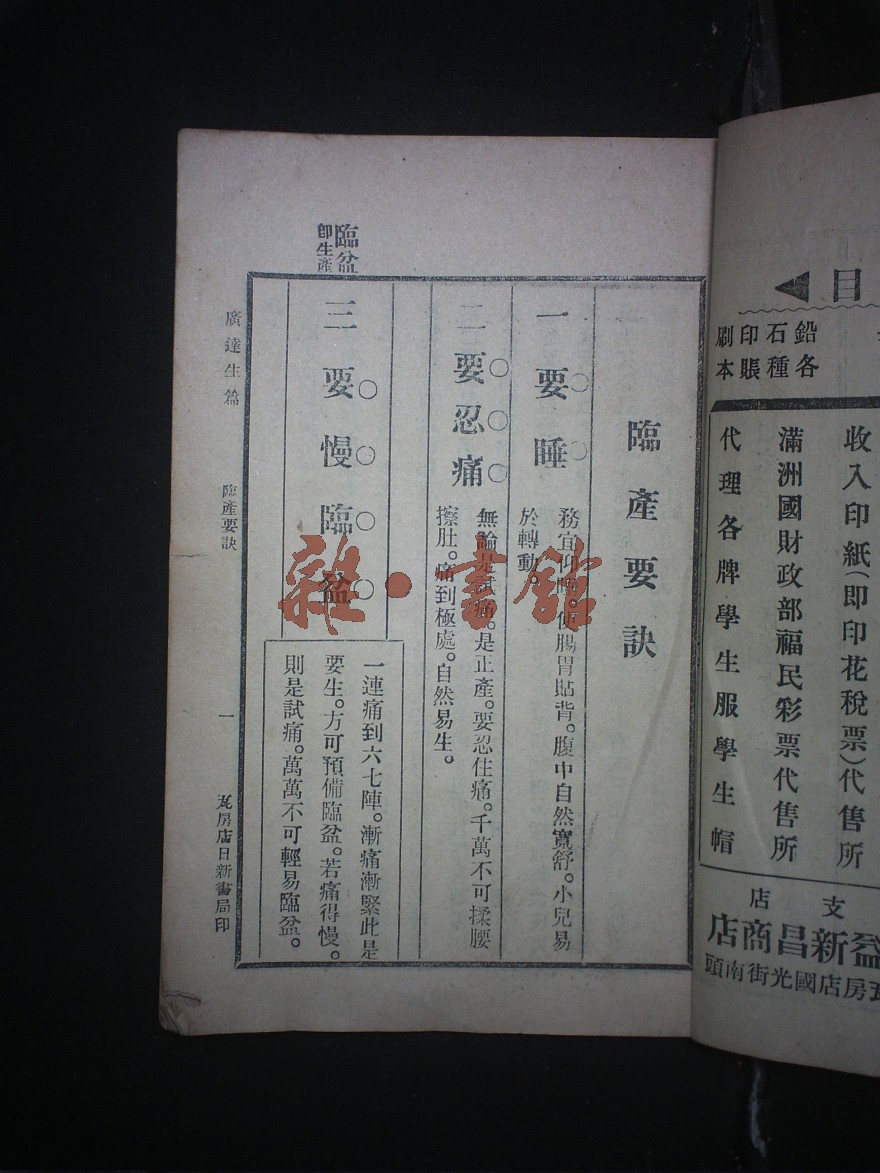 目
鉛石印刷
各種賬本
收入印紙(即印花稅票)代售所
滿洲國財政部福民彩票代售所
代理各牌學生服學生帽
支店
益新昌商店
瓦房店國光街南頭
臨盆
卽生產
臨產要訣
一要睡
務宜仰睡。使腸胃貼背。腹中自然寬舒。小兒易
於轉動。
二要忍痛
無論是試痛。是正產。要忍住痛。千萬不可揉腰
擦肚。痛到極處。自然易生。
三要慢臨盆
一連痛到六七陣。漸痛漸緊此是
要生。方可預備臨盆。若痛得慢。
則是試痛。萬萬不可輕易臨盆。
廣達生篇
臨產要訣
一
瓦房店日新書局印
雜·書館